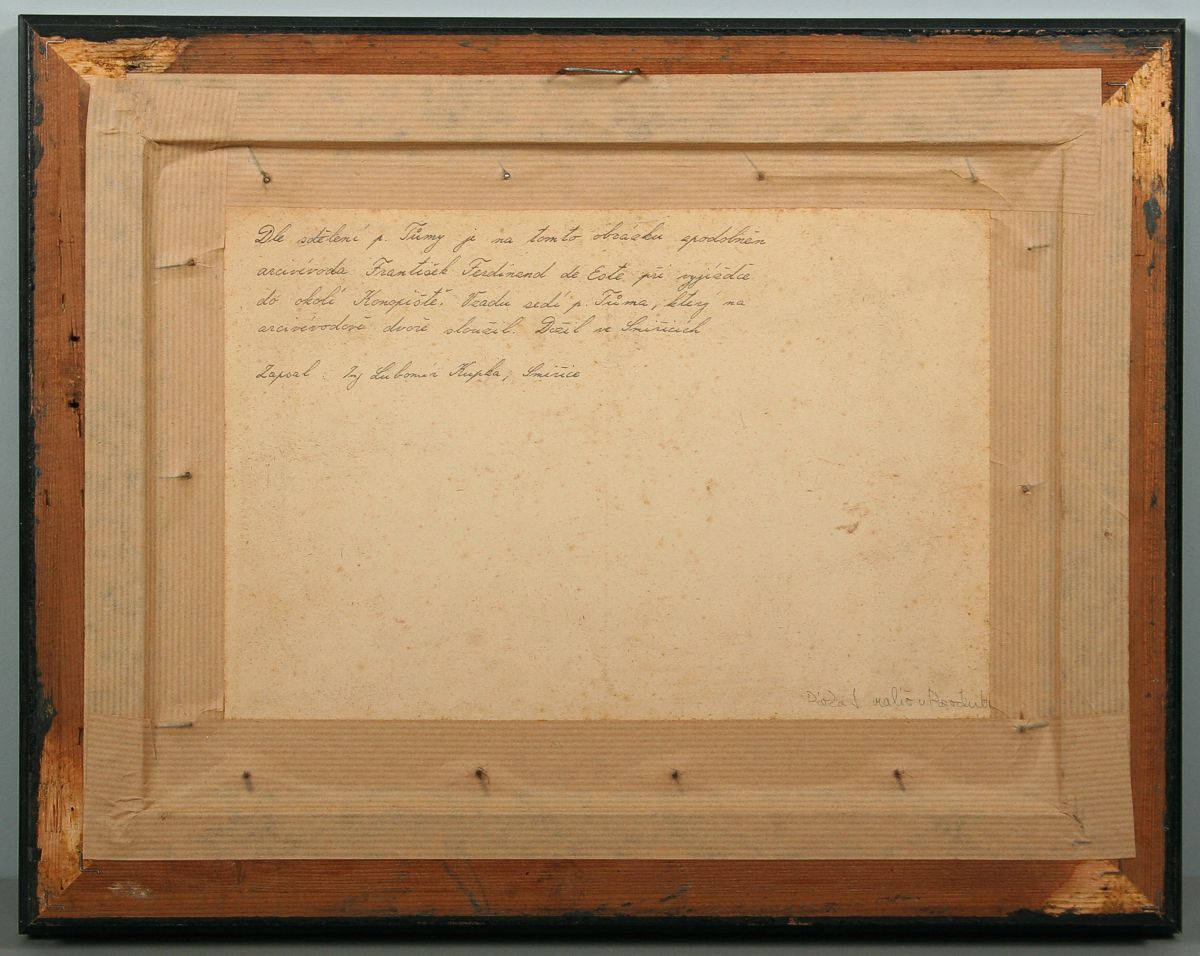 Dle sdělení p. Tůmy je na tomto obrázku zpodobněn
arcivévoda František Ferdinand de Este při vyjížďce
do okolí Konopiště. Vzadu sedí p. Tůma, který na
arcivévodově dvoře sloužil. Dožil ve Smiřicích
Zapsal: Ing Lubomír Kupka, Smiřice